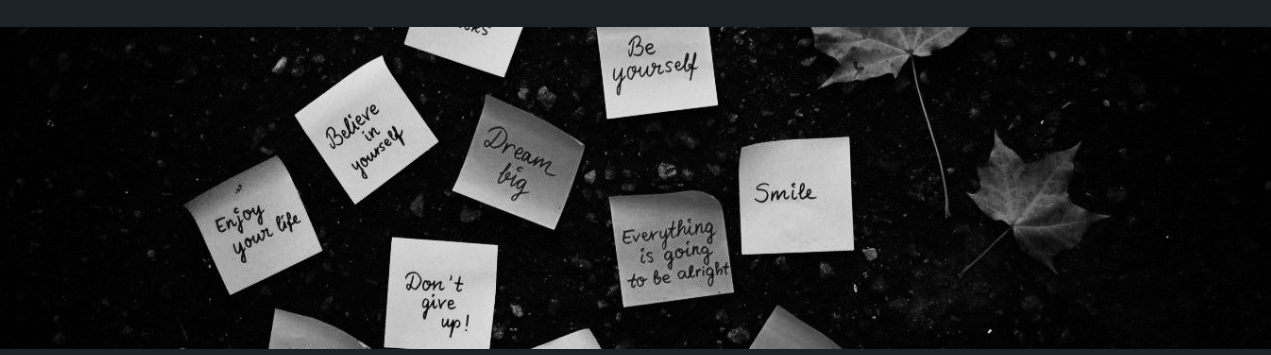 Be
yourself
Believe
in
yourself
Dream
big
Smile
Enjoy
your life
Everything
is going
to be alright
Don't
give
up!